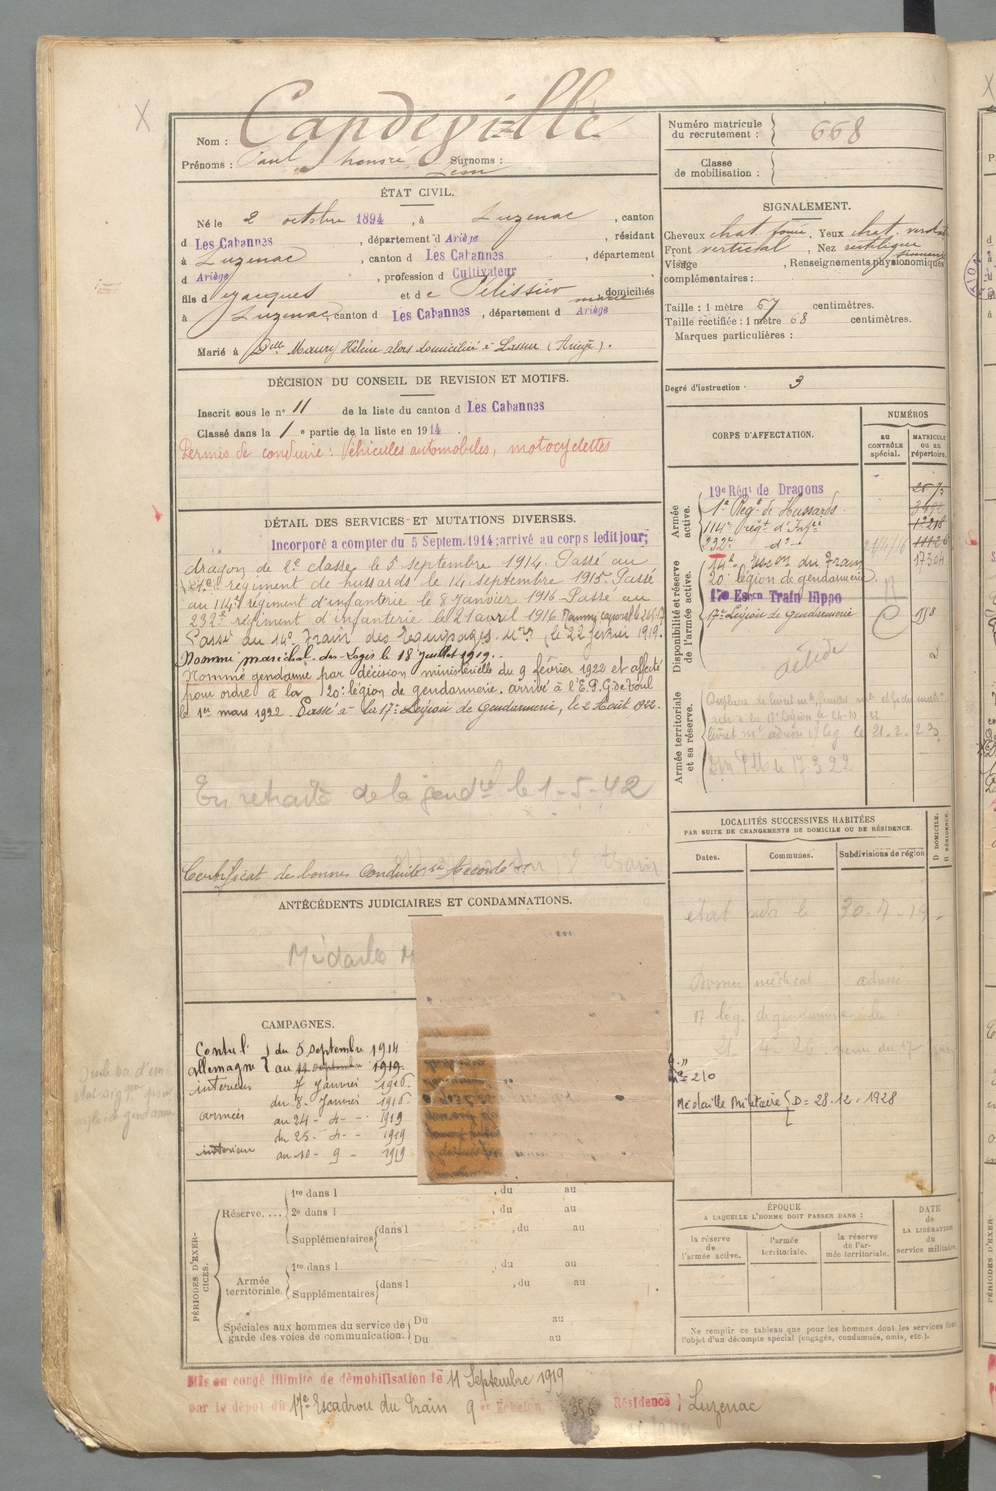 Nom : Capdeville
Prénoms : Paul honoré Surnoms :
Jean
ÉTAT CIVIL.
Né le 2 octobre 1894, à Luzenac, canton
d Les Cabannes, département d Ariège, résidant
à Luzenac, canton d Les Cabannes, département
d Ariège, profession d Cultivateur
fils d Jacques et de Pélissier marie domiciliés
à Luzenac, canton d Les Cabannes, département d Ariège
Marié à Delle Maury Hélène alors domiciliée à Lassur (Ariège).
DÉCISION DU CONSEIL DE REVISION ET MOTIFS.
Inscrit sous le n° 11 de la liste du canton d Les Cabannes
Classé dans la 1e partie de la liste en 1914.
Permis de conduire : Véhicules automobiles, motocyclettes
DÉTAIL DES SERVICES ET MUTATIONS DIVERSES.
Incorporé a compter du 5 Septem. 1914; arrivé au corps ledit jour;
dragon de 2e classe le 5 septembre 1914. Passé au
1er régiment de hussards le 14 septembre 1915. Passé
au 114e régiment d'infanterie le 8 Janvier 1916. Passé au
232e régiment d'infanterie le 21 avril 1916
Passé au 14e Train des Equipages Mres le 22 février 1919.
Nommé maréchal-des-Logis le 18 juillet 1919.
Nommé gendarme par décision ministérielle du 9 février 1922 et affecté
pour ordre à la 20e légion de gendarmerie. arrivé à l'E.P.G de Toul
le 1er mars 1922. Passé à la 17e Légion de Gendarmerie, le 2 Août 1922.
En retraite de la gendie le 1-5-42
Certificat de bonne Conduite Accordé
ANTÉCÉDENTS JUDICIAIRES ET CONDAMNATIONS.
Médaille M
CAMPAGNES.
Contre l' du 5 septembre 1914
allemagne au
intérieur 7 Janvier 1916
du 8 Janvier 1916
armées au 24-4-1919
du 25-4-1919
intérieur au 10-9-1919
PÉRIODES D'EXERCICES.
Réserve.... 1re dans l , du au
2e dans l , du au
Supplémentaires dans l , du au
Armée territoriale. 1re dans l , du au
Supplémentaires dans l , du au
Spéciales aux hommes du service de garde des voies de communication. Du au
Du au
Mis en congé illimité de démobilisation le 11 Septembre 1919
par le dépôt du 17e Escadron du Train 9e Echelon 356 Résidence } Luzenac
Numéro matricule du recrutement : 668
Classe de mobilisation :
SIGNALEMENT.
Cheveux chat. foncé, Yeux chat. verdat
Front vertical, Nez rectiligne
Visage , Renseignements physionomiques
complémentaires :
Taille : 1 mètre 67 centimètres.
Taille rectifiée : 1 mètre 68 centimètres.
Marques particulières :
Degré d'instruction : 3
CORPS D'AFFECTATION.
NUMÉROS
AU CONTRÔLE spécial.
MATRICULE ou au répertoire.
Armée active.
19e Régt de Dragons
1er Regt de Hussards
114e regt d'Infie
232e do
14e Escon du Train 17304
Disponibilité et réserve de l'armée active.
20e légion de gendarmerie
17e Escon Train Hippo
17e Légion de Gendarmerie
Armée territoriale et sa réserve.
LOCALITÉS SUCCESSIVES HABITÉES
PAR SUITE DE CHANGEMENTS DE DOMICILE OU DE RÉSIDENCE.
Dates.
Communes.
Subdivisions de région
D DOMICILE.
R RÉSIDENCE.
30-7-19
Dossier médical adressé
17 leg. de gendarmerie le
n° 210
Médaille Militaire D= 28.12.1928
ÉPOQUE
A LAQUELLE L'HOMME DOIT PASSER DANS :
la réserve de l'armée active.
l'armée territoriale.
la réserve de l'armée territoriale.
DATE de LA LIBÉRATION du service militaire.
Ne remplir ce tableau que pour les hommes dont les services font
l'objet d'un décompte spécial (engagés, condamnés, omis, etc.).